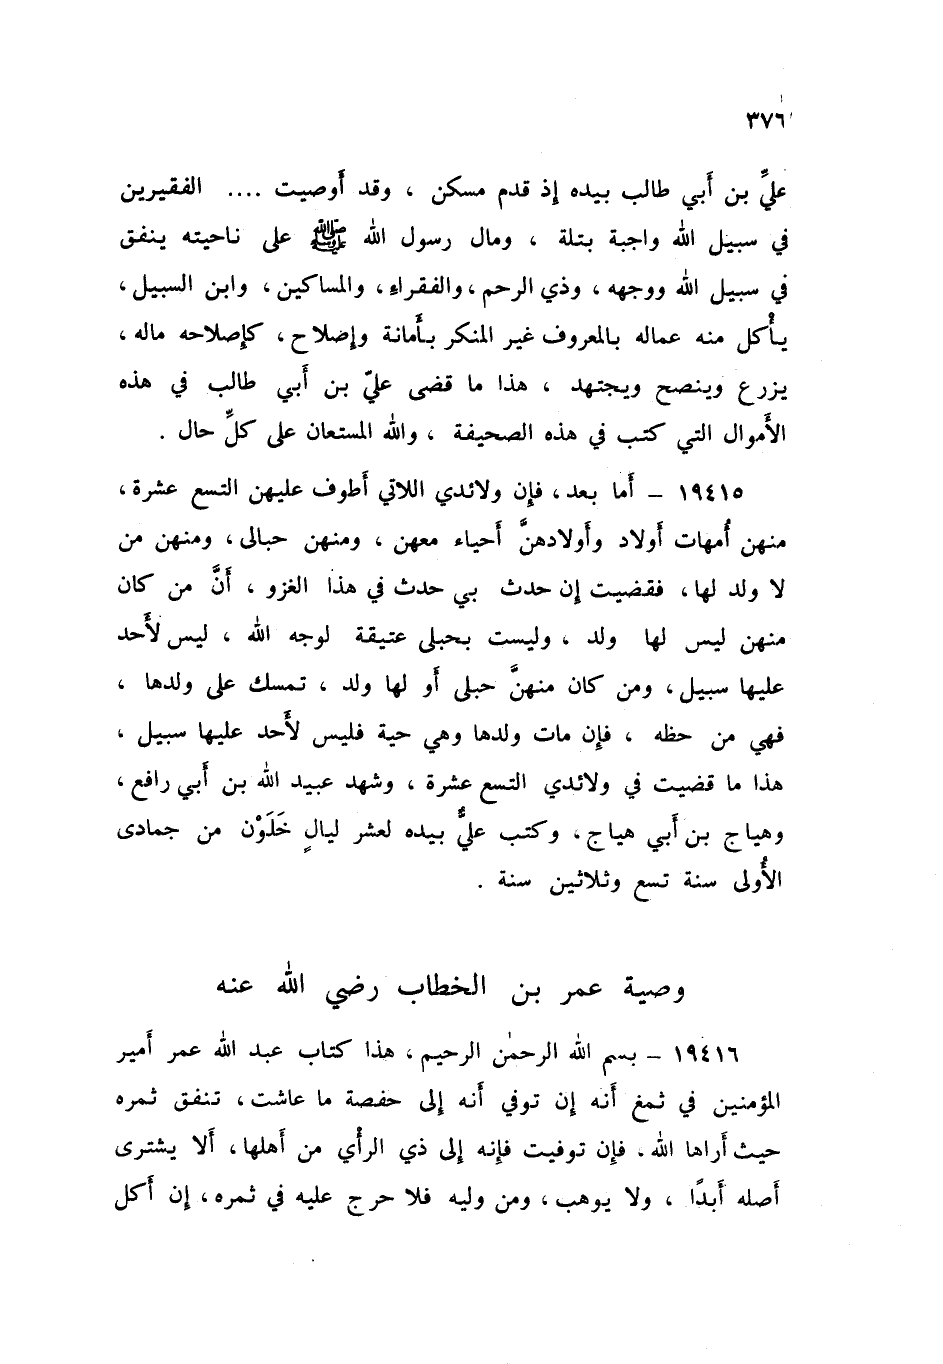 ٣٧٦
عليِّ بن أَبي طالب بيده إذ قدم مسكن ، وقد أَوصيت .... الفقيرين
في سبيل الله واجبة بتلة ، ومال رسول الله ﷺ على ناحيته ينفق
في سبيل الله ووجهه ، وذي الرحم ، والفقراء ، والمساكين ، وابن السبيل ،
يأْكل منه عماله بالمعروف غير المنكر بأَمانة وإصلاح ، كإصلاحه ماله ،
يزرع وينصح ويجتهد ، هذا ما قضى عليّ بن أَبي طالب في هذه
الأَموال التي كتب في هذه الصحيفة ، والله المستعان على كلِّ حال .
١٩٤١٥ – أَما بعد ، فإن ولائدي اللاتي أَطوف عليهن التسع عشرة ،
منهن أُمهات أَولاد وأَولادهنَّ أَحياء معهن ، ومنهن حبالى ، ومنهن من
لا ولد لها ، فقضيت إن حدث بي حدث في هذا الغزو ، أَنَّ من كان
منهن ليس لها ولد ، وليست بحبلى عتيقة لوجه الله ، ليس لأَحد
عليها سبيل ، ومن كان منهنَّ حبلى أَو لها ولد ، تمسك على ولدها ،
فهي من حظه ، فإن مات ولدها وهي حية فليس لأَحد عليها سبيل ،
هذا ما قضيت في ولائدي التسع عشرة ، وشهد عبيد الله بن أَبي رافع ،
وهياج بن أَبي هياج ، وكتب عليٌّ بيده لعشر ليالٍ خَلَوْن من جمادى
الأُولى سنة تسع وثلاثين سنة .
وصية عمر بن الخطاب رضي الله عنه
١٩٤١٦ – بسم الله الرحمٰن الرحيم ، هذا كتاب عبد الله عمر أَمير
المؤمنين في ثمغ أَنه إن توفي أَنه إلى حفصة ما عاشت ، تنفق ثمره
حيث أَراها الله ، فإن توفيت فإنه إلى ذي الرأْي من أَهلها ، أَلا يشترى
أَصله أَبدًا ، ولا يوهب ، ومن وليه فلا حرج عليه في ثمره ، إن أَكل